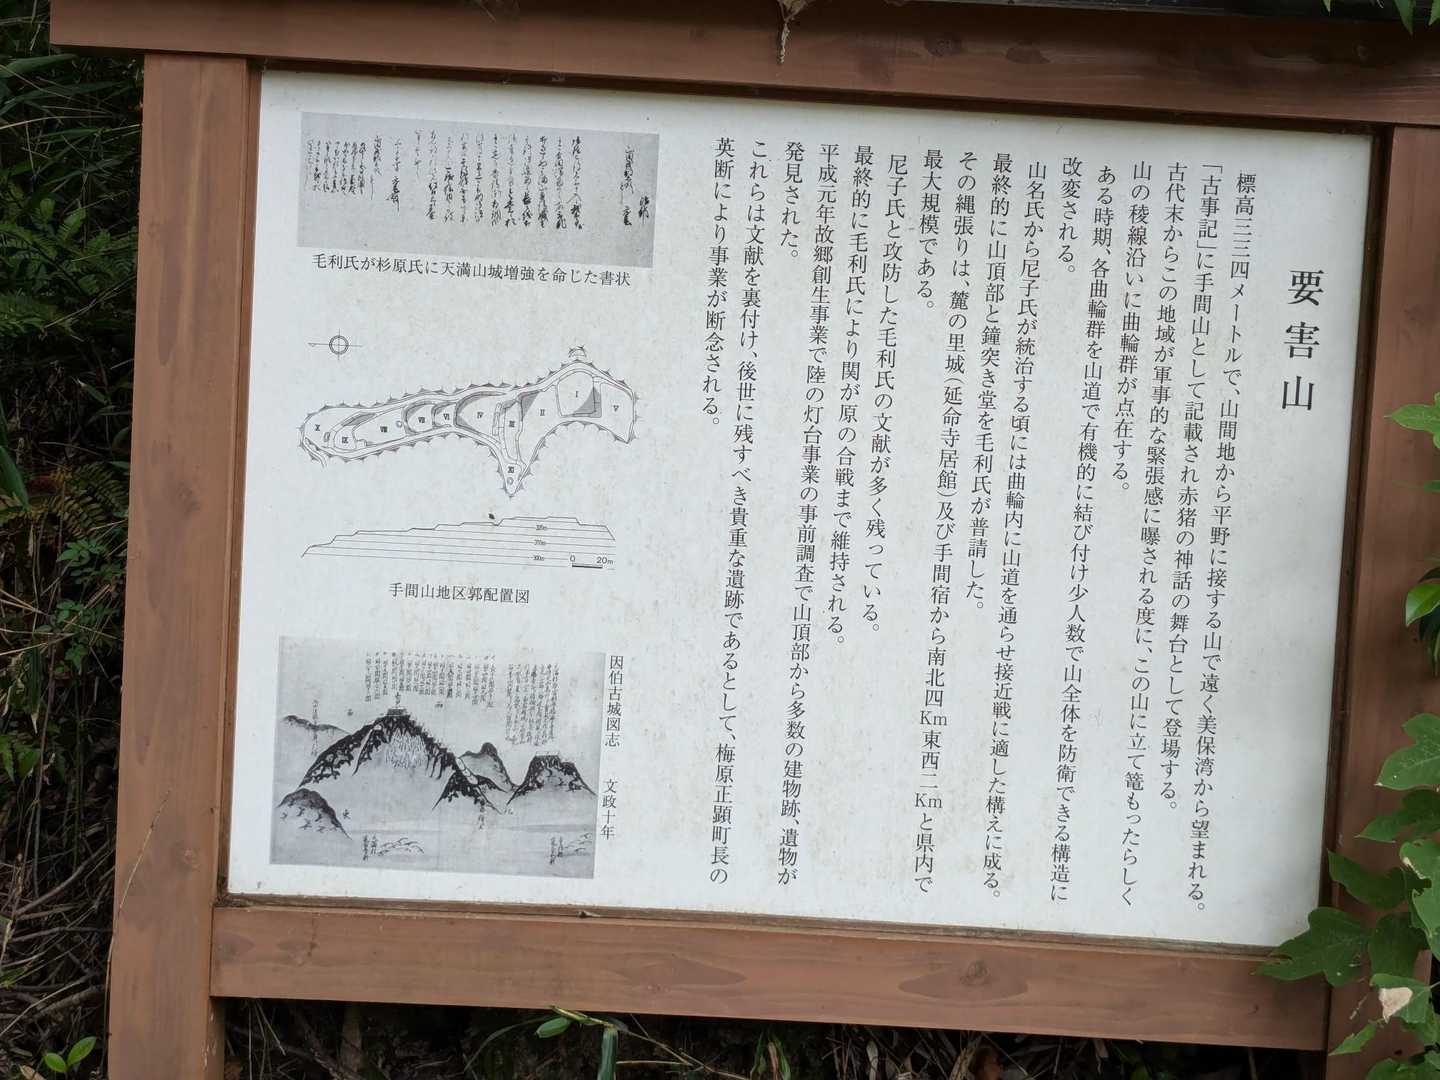 要害山
標高三三四メートルで、山間地から平野に接する山で遠く美保湾から望まれる。
「古事記」に手間山として記載され赤猪の神話の舞台として登場する。
古代末からこの地域が軍事的な緊張感に曝される度に、この山に立て篭もったらしく
山の稜線沿いに曲輪群が点在する。
ある時期、各曲輪群を山道で有機的に結び付け少人数で山全体を防衛できる構造に
改変される。
山名氏から尼子氏が統治する頃には曲輪内に山道を通らせ接近戦に適した構えに成る。
最終的に山頂部と鐘突き堂を毛利氏が普請した。
その縄張りは、麓の里城（延命寺居館）及び手間宿から南北四Km東西二Kmと県内で
最大規模である。
尼子氏と攻防した毛利氏の文献が多く残っている。
最終的に毛利氏により関が原の合戦まで維持される。
平成元年故郷創生事業で陸の灯台事業の事前調査で山頂部から多数の建物跡、遺物が
発見された。
これらは文献を裏付け、後世に残すべき貴重な遺跡であるとして、梅原正顕町長の
英断により事業が断念される。
毛利氏が杉原氏に天満山城増強を命じた書状
I
II
III
IV
V
VI
VII
VIII
IX
X
XI
0 20m
手間山地区郭配置図
因伯古城図志 文政十年